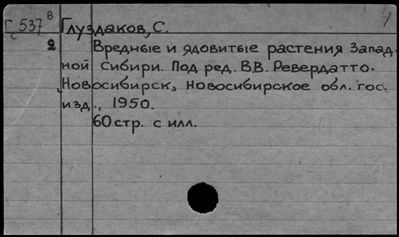 Г 537 в Глуздаков, С.
2 Вредные и ядовитые растения Запад-
ной Сибири. Под ред. В.В. Ревердатто.
Новосибирск, Новосибирское обл. гос.
изд., 1950.
60 стр. с илл.